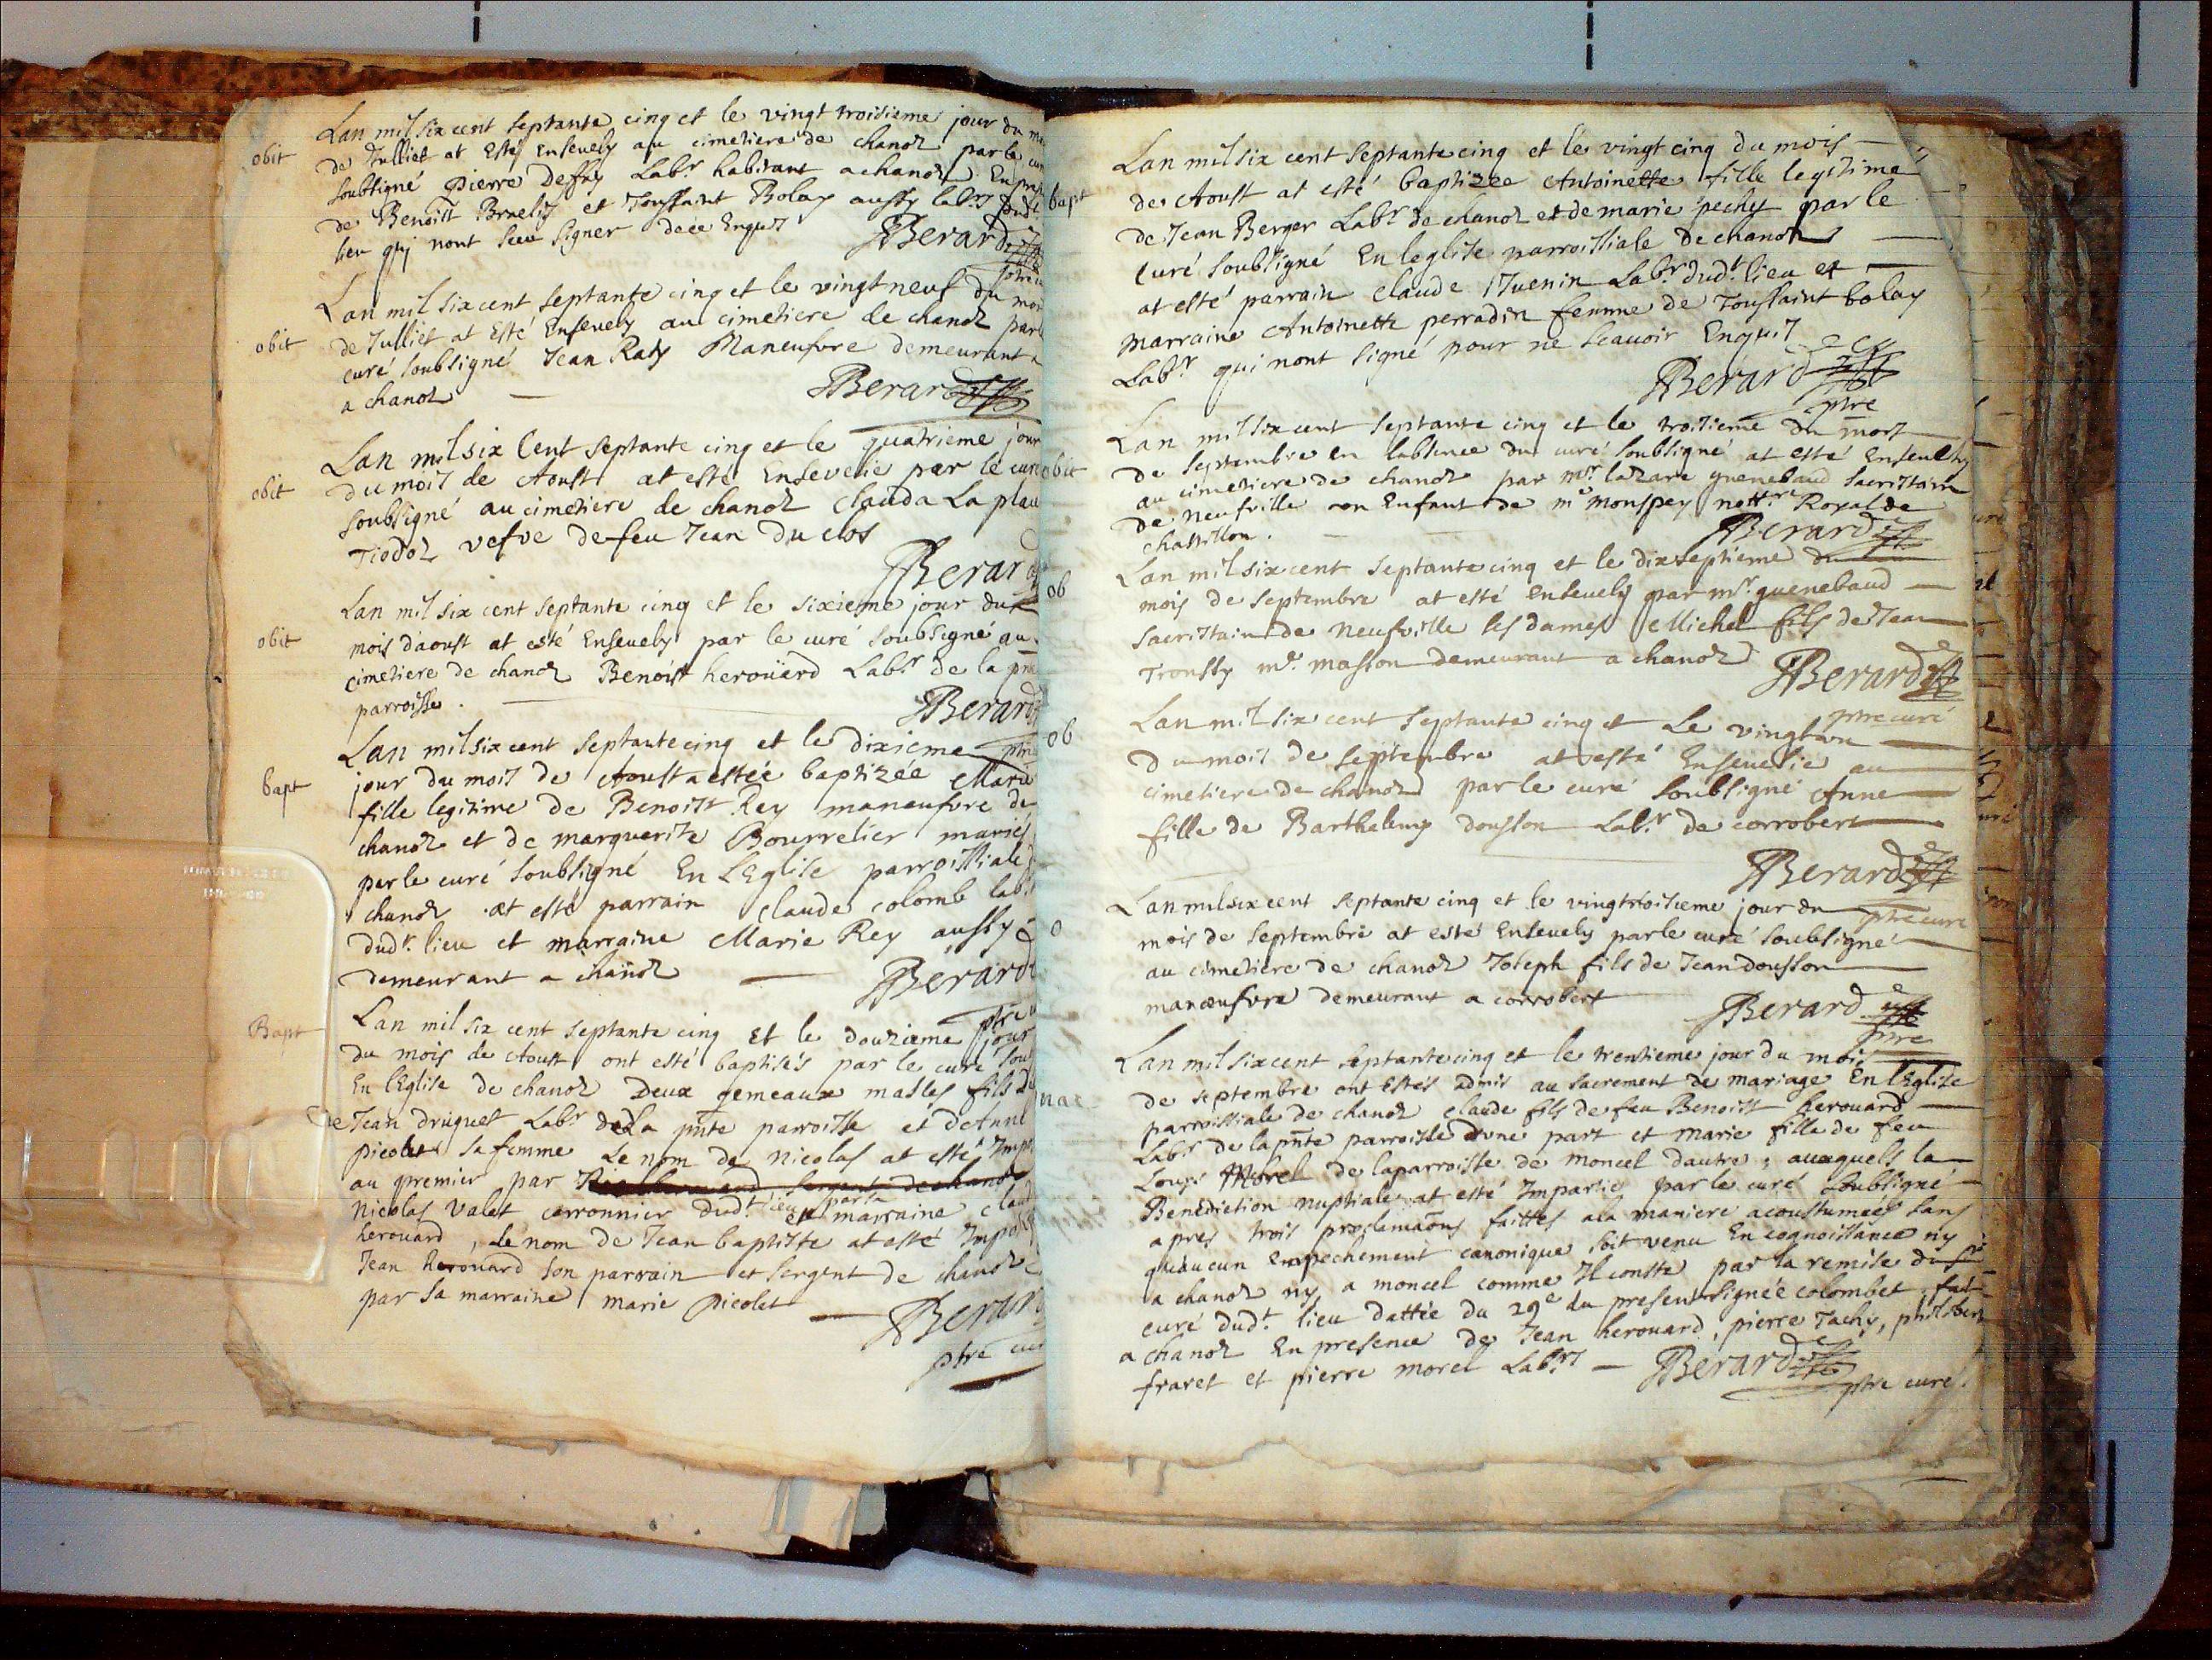 Lan mil six cent septante cinq et le vingt troisieme jour du
obit
de Julliet at esté Enseuely au cimetiere de chanoz par le
soubsigné Pierre Defay Labr habitant a chanoz En
de Benoist et Toussaint Bolay aussy labrs dudt
lieu qui nont sceu signer de ce Enquis
Berard
Lan mil six cent septante cinq et le vingt neuf du
obit
de Julliet at esté Enseuely au cimetiere de chanoz
curé soubsigné Jean Raty Maneufvre demeurant
a chanoz
Berard
Lan mil six Cent septante cinq et le quatrieme jour
obit
du mois de Aoust at esté Ensevelie par le curé
soubsigné au cimetiere de chanoz Clauda La
vefve de feu Jean du clos
Berard
Lan mil six cent septante cinq et le sixieme jour du
obit
mois daoust at esté Enseuely par le curé soubsigné au
cimetiere de chanoz Benoist heroüard Labr de la
parroisse.
Berard
Lan mil six cent septante cinq et le dixieme
bapt
jour du mois de Aoust a estée baptizée Marie
fille legitime de Benoist Rey maneufvre de
chanoz et de marguerite Bourrelier mariés
par le curé soubsigné En LEglise parroissiale
chanoz at esté parrain claude colomb labr
dudt. lieu et marraine Marie Rey aussy
demeurant a chanoz
Berard
Lan mil six cent septante cinq Et le douzieme jour
Bapt
du mois de Aoust ont esté baptisés par le curé
En lEglise de chanoz Deux gemeaux masles fils
de Jean druguet Labr de La pnte parroisse et dAnne
picolet sa femme Le nom de nicolas at esté
au premier par
nicolas Valet dudt. lieu et par sa marraine
herouard, le nom de Jean baptiste at esté
Jean herouard son parrain et sergent de chanoz
par sa marraine marie picolet
Berard
ptre
Lan mil six cent septante cinq et le vingt cinq du mois
bapt
de Aoust at esté baptizee Antoinette fille legitime
de Jean Berger Labr de chanoz et de marie pechy par le
Curé soubsigné En leglise parroissiale de chanoz
at esté parrain claude Juenin Labr dudt. lieu et
marraine Antoinette perradin femme de Toussaint bolay
Labr qui nont signé pour ne scauoir Enquis
Berard
ptre
Lan mil six cent septante cinq et le troisieme du mois
obit
de septembre en labsence du curé soubsigné at esté enseuely
au cimetiere de chanoz par msr. lazare guenebaud sacristain
de neufville un Enfant de me monspey nottre Royal de
chastillon.
Berard
Lan mil six cent septante cinq et le dixseptieme du
ob
mois de septembre at esté enseuely par msr. guenebaud
sacristain de neufville les dames Michel fils de Jean
Troussy me. masson demeurant a chanoz
Berard
ptre curé
Lan mil six cent septante cinq et Le vingt un
ob
du mois de septembre at esté Enseuelie au
cimetiere de chanoz par le curé soubsigné Anne
fille de Barthelemy dousson Labr de corrobert
Berard
ptre curé
Lan mil six cent septante cinq et le vingt troisieme jour du
o
mois de septembre at esté Enseuely par le curé soubsigné
au cimetiere de chanoz Joseph fils de Jean dousson
manœufvre demeurant a corrobert
Berard
ptre
Lan mil six cent septante cinq et le trentieme jour du mois
de septembre ont estés admis au sacrement de mariage En lEglise
parroissiale de chanoz claude fils de feu Benoist herouard
Labr de la pnte parroisse dune part et marie fille de feu
Louys Morel de la parroisse de moncel dautre, auxquels la
Benediction nuptiale at esté Impartie par le curé soubsigné
apres trois proclemaons faittes a la maniere acoustumée sans
quaucun empechement canonique soit venu En cognoissance ny
a chanoz ny a moncel comme Il conste par la remise du sr
curé dudt. lieu dattée du 29e du present signée colombet, fait
a chanoz En presence de Jean herouard, pierre Tachy, philibert
fravet et pierre morel Labrs
Berard
ptre curé.